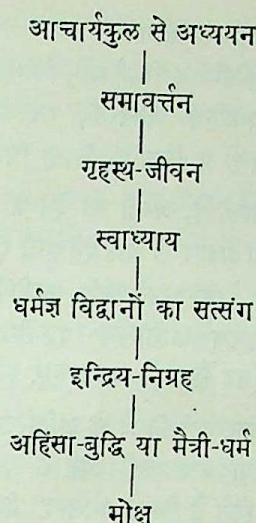 आचार्यकुल से अध्ययन
समावर्त्तन
गृहस्थ-जीवन
स्वाध्याय
धर्मज्ञ विद्वानों का सत्संग
इन्द्रिय-निग्रह
अहिंसा-बुद्धि या मैत्री-धर्म
मोक्ष